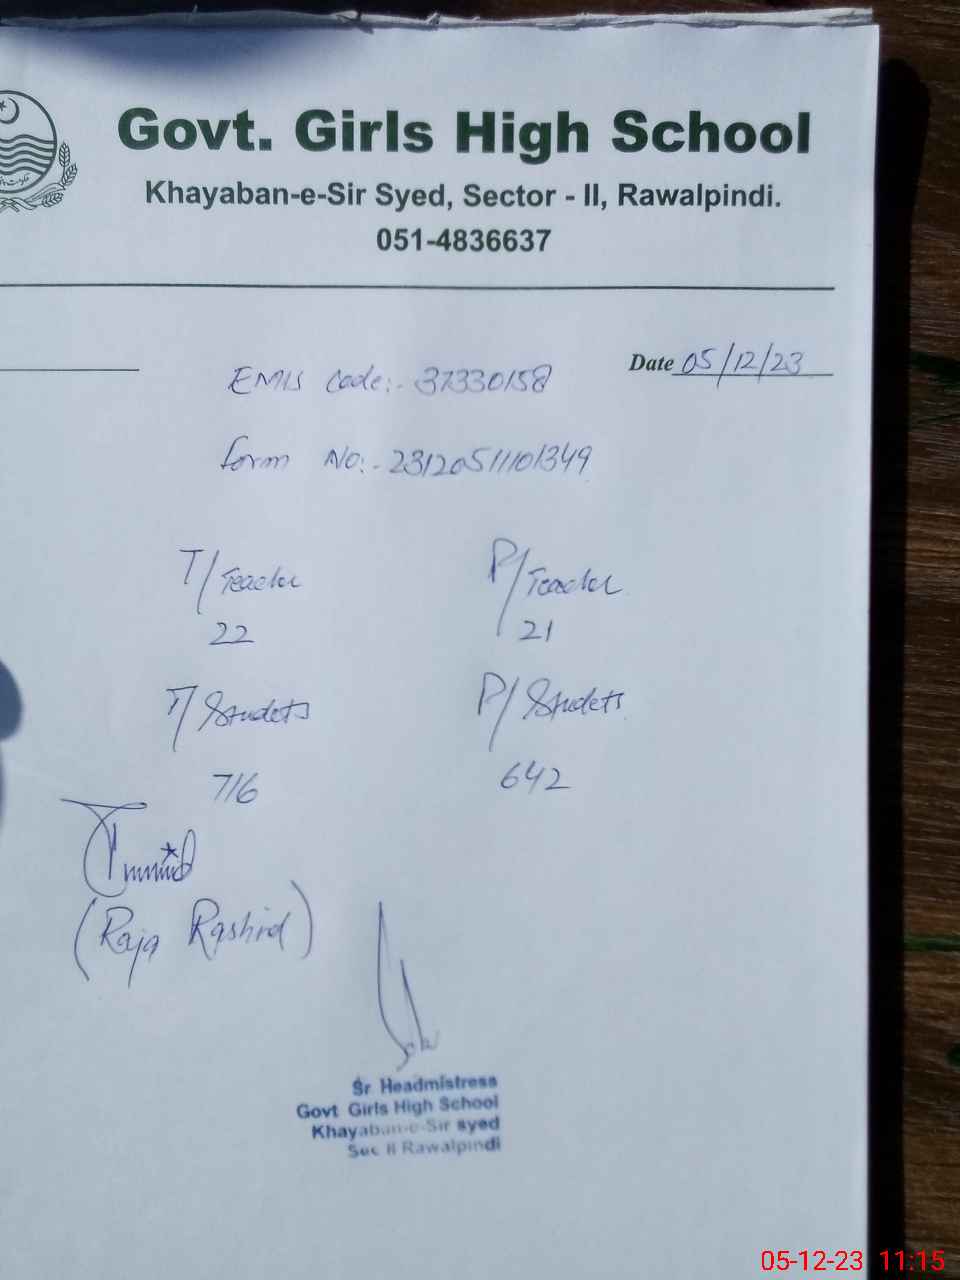 Govt. Girls High School
Khayaban-e-Sir Syed, Sector - II, Rawalpindi.
051-4836637
Date 05/12/23
EMIS Code:- 37330158
Form No:- 23120511101349
T/Teacher P/Teacher
22 21
T/Studets P/Studets
716 642
(Raja Rashid)
Sr Headmistress
Govt Girls High School
Khayaban-e-Sir syed
Sec II Rawalpindi
05-12-23 11:15